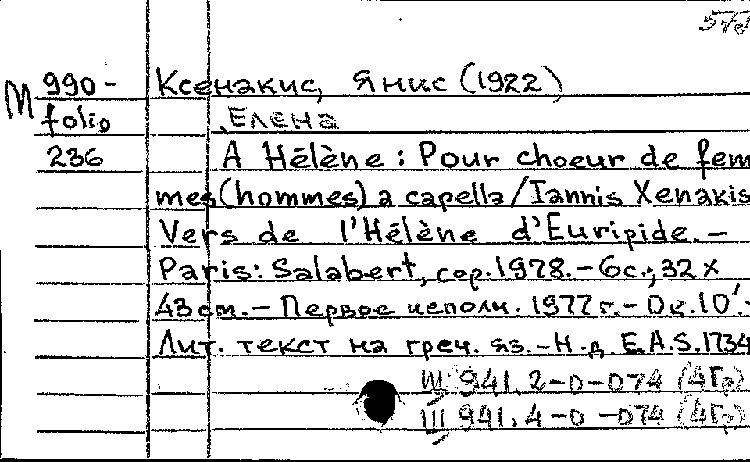 990- Ксенакис, Янис (1922)
М folio Елена
236 A Hélène: Pour choeur de fem
mes (hommes) a capella / Iannis Xenakis
Vers de l'Hélène d'Euripide. –
Paris: Salabert, cop. 1978. – 6с.; 32 x
43 cm. – Первое исполн. 1977 г. – Ок. 10'. –
Лит. текст на греч. яз. – Н. д. E.A.S. 1734
Ш 941.2-0-074 (4Гр)
Ш 941.4-0-074 (4Гр)